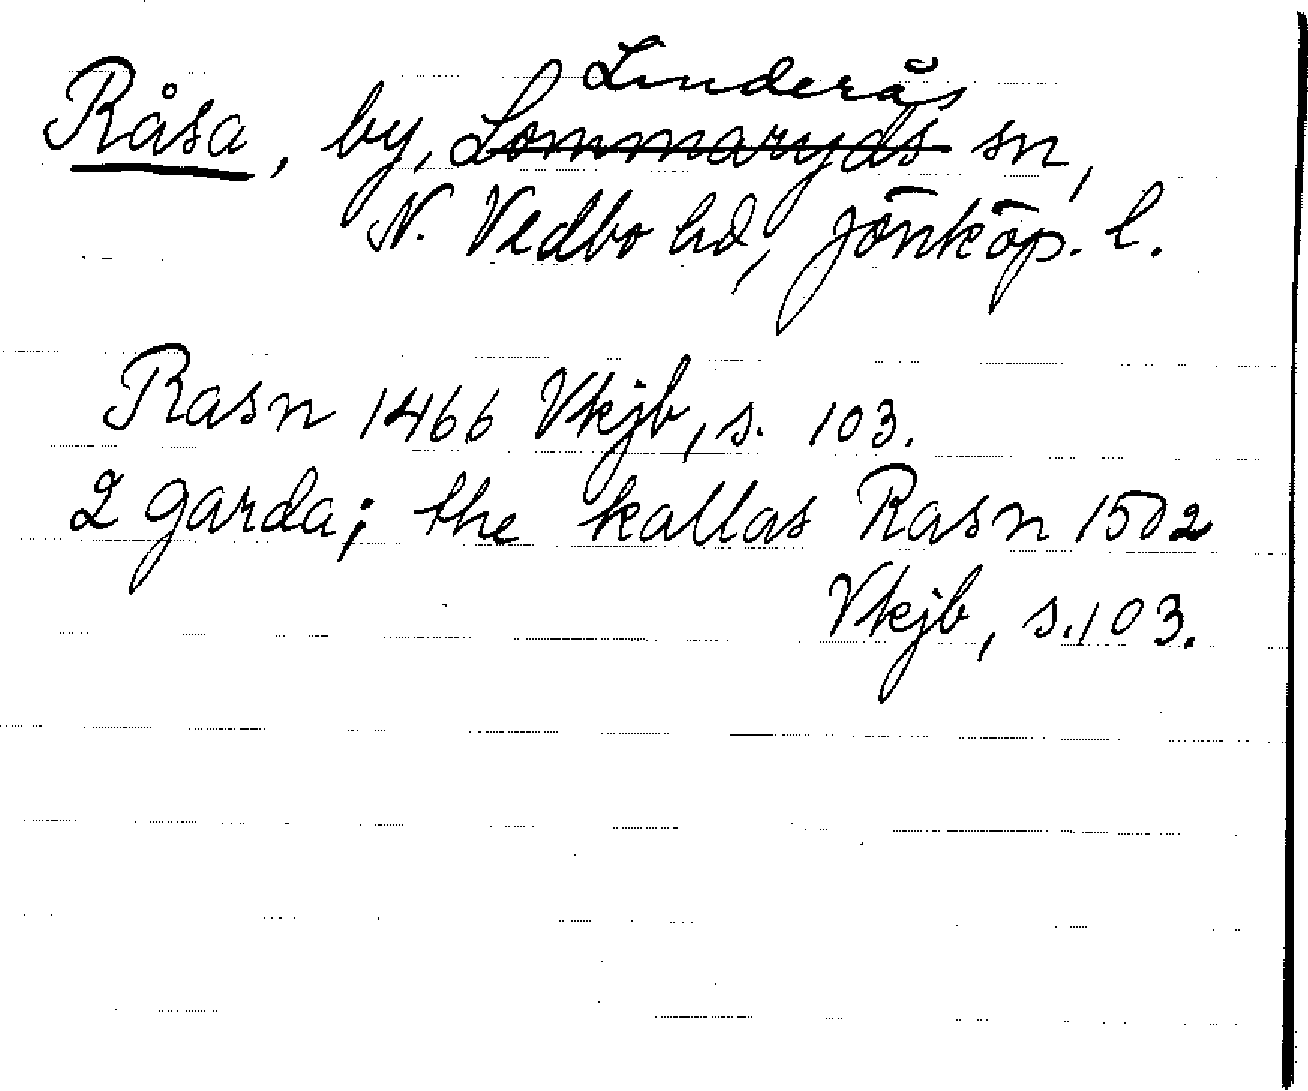 Linderås
Råsa, by, Lommaryds sn,
N. Vedbo hd, Jönköp. l.
Rasn 1466 Vkjb, s. 103.
2 garda; the kallas Rasn 1502
Vkjb, s. 103.